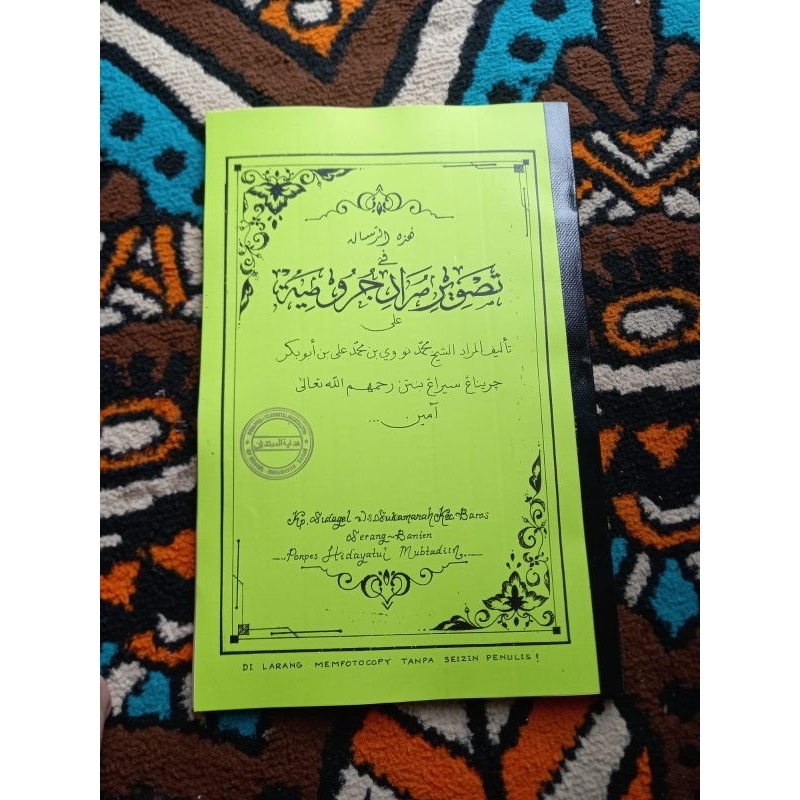 هذه الرسالة
في
تَصْوِيْرِ مُرَادِ جُرُوْمِيَة
على
تأليف المراد الشيخ محمّد نووي بن محمّد على بن أبو بكر
جريناغ سيراغ بنتن رحمهم الله تعالى
آمين...
هداية المبتدئين
Kp. Sidagel Ds. Sukamanah Kec. Baros
Serang - Banten
....Ponpes Hidayatul Mubtadiin....
DI LARANG MEMFOTOCOPY TANPA SEIZIN PENULIS!